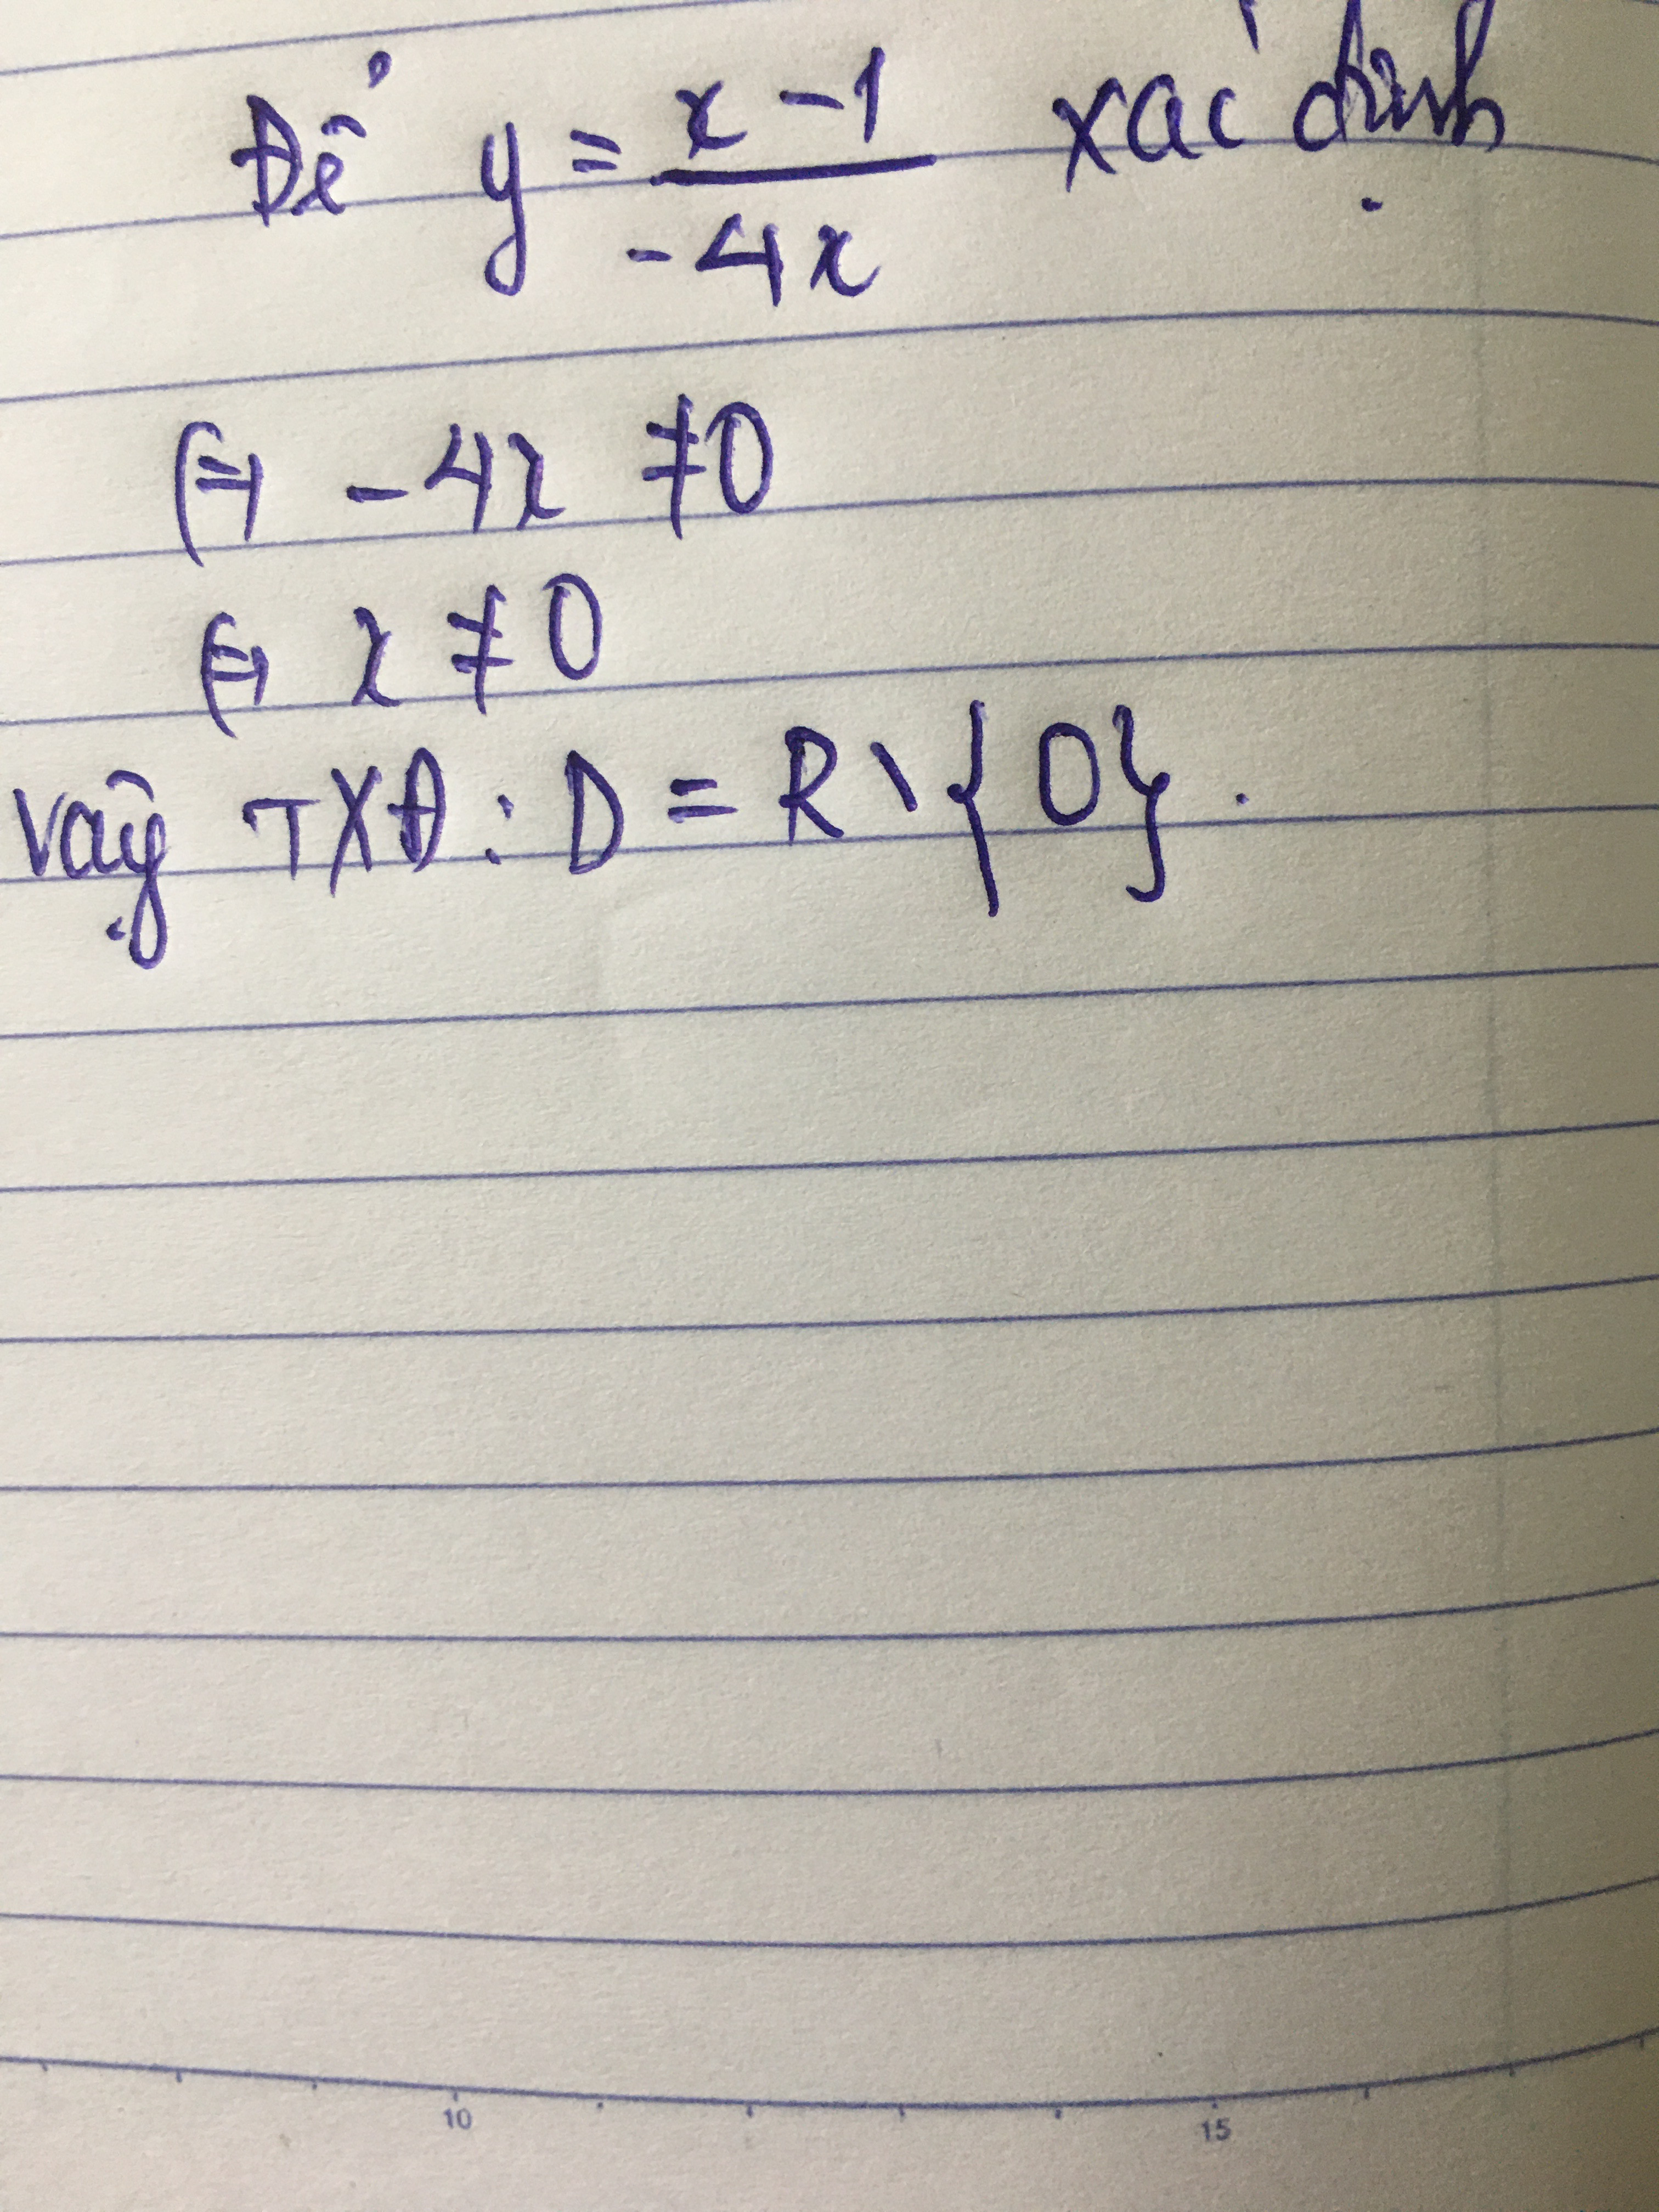 Để y = \frac{x - 1}{-4x} xác định
⇔ -4x ≠ 0
⇔ x ≠ 0
Vậy TXĐ: D = R \ {0}.
10 15